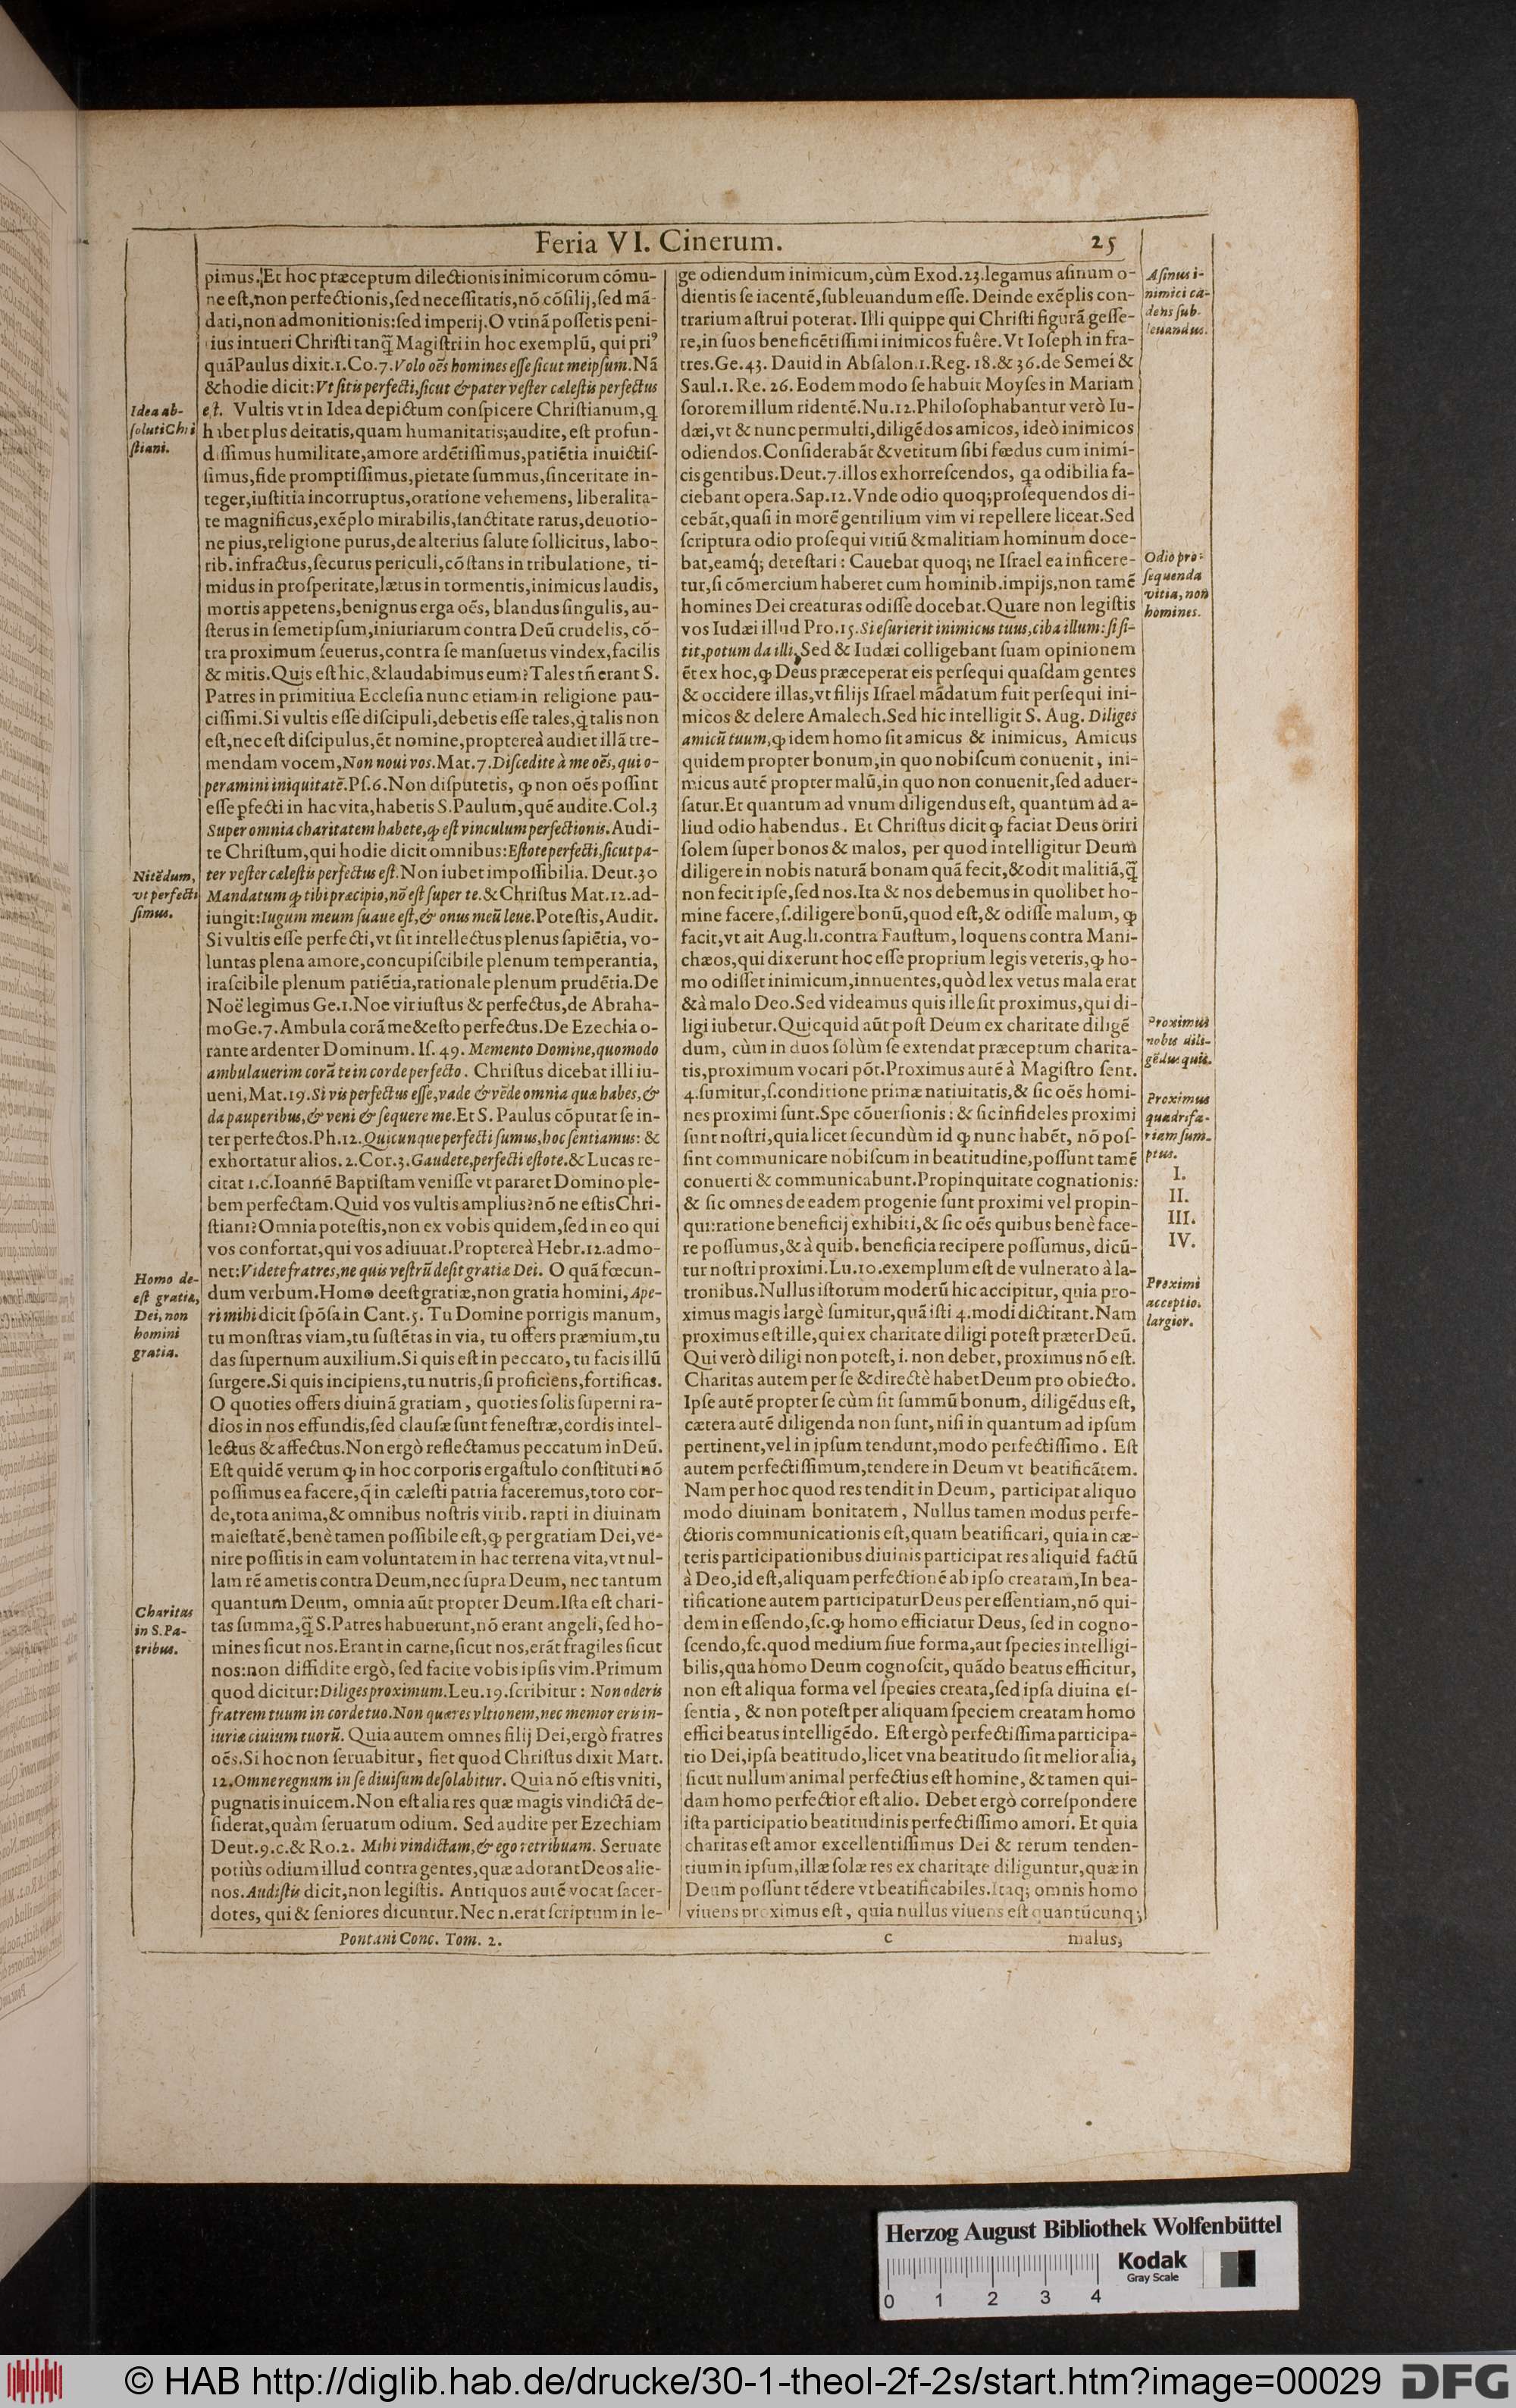 Feria VI. Cinerum. 25
pimus. Et hoc præceptum dilectionis inimicorum cōmu-
ne est, non perfectionis, sed necessitatis, nō cōsilij, sed mā-
dati, non admonitionis: sed imperij. O vtinā possetis peni-
ius intueri Christi tanq̄ Magistri in hoc exemplū, qui pri⁹
quā Paulus dixit. 1. Co. 7. Volo oēs homines esse sicut meipsum. Nā
& hodie dicit: Vt sitis perfecti, sicut & pater vester cælestis perfectus
est. Vultis vt in Idea depictum conspicere Christianum, q
habet plus deitatis, quam humanitatis; audite, est profun-
dissimus humilitate, amore ardētissimus, patiētia inuictis-
simus, fide promptissimus, pietate summus, sinceritate in-
teger, iustitia incorruptus, oratione vehemens, liberalita-
te magnificus, exēplo mirabilis, sanctitate rarus, deuotio-
ne pius, religione purus, de alterius salute sollicitus, labo-
rib. infractus, securus periculi, cōstans in tribulatione, ti-
midus in prosperitate, lætus in tormentis, inimicus laudis,
mortis appetens, benignus erga oēs, blandus singulis, au-
sterus in semetipsum, iniuriarum contra Deū crudelis, cō-
tra proximum seuerus, contra se mansuetus vindex, facilis
& mitis. Quis est hic, & laudabimus eum? Tales tñ erant S.
Patres in primitiua Ecclesia nunc etiam in religione pau-
cissimi. Si vultis esse discipuli, debetis esse tales, q talis non
est, nec est discipulus, ēt nomine, proptereà audiet illā tre-
mendam vocem, Non noui vos. Mat. 7. Discedite à me oēs, qui o-
peramini iniquitatē. Ps. 6. Non disputetis, ꝙ non oēs possint
esse ꝑfecti in hac vita, habetis S. Paulum, quē audite. Col. 3
Super omnia charitatem habete, ꝙ est vinculum perfectionis. Audi-
te Christum, qui hodie dicit omnibus: Estote perfecti, sicut pa-
ter vester cælestis perfectus est. Non iubet impossibilia. Deut. 30
Mandatum ꝙ tibi præcipio, nō est super te. & Christus Mat. 12. ad-
iungit: Iugum meum suaue est, & onus meū leue. Potestis, Audit.
Si vultis esse perfecti, vt sit intellectus plenus sapiētia, vo-
luntas plena amore, concupiscibile plenum temperantia,
irascibile plenum patiētia, rationale plenum prudētia. De
Noë legimus Ge. 1. Noe vir iustus & perfectus, de Abraha-
mo Ge. 7. Ambula corā me & esto perfectus. De Ezechia o-
rante ardenter Dominum. Is. 49. Memento Domine, quomodo
ambulauerim corā te in corde perfecto. Christus dicebat illi iu-
ueni, Mat. 19. Si vis perfectus esse, vade & vēde omnia quæ habes, &
da pauperibus, & veni & sequere me. Et S. Paulus cōputat se in-
ter perfectos. Ph. 12. Quicunque perfecti sumus, hoc sentiamus: &
exhortatur alios. 2. Cor. 3. Gaudete, perfecti estote. & Lucas re-
citat 1. c. Ioannē Baptistam venisse vt pararet Domino ple-
bem perfectam. Quid vos vultis amplius? nō ne estis Chri-
stiani? Omnia potestis, non ex vobis quidem, sed in eo qui
vos confortat, qui vos adiuuat. Proptereà Hebr. 12. admo-
net: Videte fratres, ne quis vestrū desit gratiæ Dei. O quā fœcun-
dum verbum. Homo deest gratiæ, non gratia homini, Ape-
ri mihi dicit spōsa in Cant. 5. Tu Domine porrigis manum,
tu monstras viam, tu sustētas in via, tu offers præmium, tu
das supernum auxilium. Si quis est in peccato, tu facis illū
surgere. Si quis incipiens, tu nutris, si proficiens, fortificas.
O quoties offers diuinā gratiam, quoties solis superni ra-
dios in nos effundis, sed clausæ sunt fenestræ, cordis intel-
lectus & affectus. Non ergò reflectamus peccatum in Deū.
Est quidē verum ꝙ in hoc corporis ergastulo constituti nō
possimus ea facere, q̄ in cælesti patria faceremus, toto cor-
de, tota anima, & omnibus nostris virib. rapti in diuinam
maiestatē, benè tamen possibile est, ꝙ per gratiam Dei, ve-
nire possitis in eam voluntatem in hac terrena vita, vt nul-
lam rē ametis contra Deum, nec supra Deum, nec tantum
quantum Deum, omnia aūt propter Deum. Ista est chari-
tas summa, q̄ S. Patres habuerunt, nō erant angeli, sed ho-
mines sicut nos. Erant in carne, sicut nos, erāt fragiles sicut
nos: non diffidite ergò, sed facite vobis ipsis vim. Primum
quod dicitur: Diliges proximum. Leu. 19. scribitur: Non oderis
fratrem tuum in corde tuo. Non quæres vltionem, nec memor eris in-
iuriæ ciuium tuorū. Quia autem omnes filij Dei, ergò fratres
oēs. Si hoc non seruabitur, fiet quod Christus dixit Matt.
12. Omne regnum in se diuisum desolabitur. Quia nō estis vniti,
pugnatis inuicem. Non est alia res quæ magis vindictā de-
siderat, quàm seruatum odium. Sed audite per Ezechiam
Deut. 9. c. & Ro. 2. Mihi vindictam, & ego retribuam. Seruate
potiùs odium illud contra gentes, quæ adorant Deos alie-
nos. Audistis dicit, non legistis. Antiquos autē vocat sacer-
dotes, qui & seniores dicuntur. Nec n. erat scriptum in le-
Idea ab-
soluti Chri
stiani.
Nitēdum,
vt perfecti
simus.
Homo de-
est gratiæ,
Dei, non
homini
gratia.
Charitas
in S. Pa-
tribus.
ge odiendum inimicum, cùm Exod. 23. legamus asinum o-
dientis se iacentē, subleuandum esse. Deinde exēplis con-
trarium astrui poterat. Illi quippe qui Christi figurā gesse-
re, in suos beneficētissimi inimicos fuêre. Vt Ioseph in fra-
tres. Ge. 43. Dauid in Absalon. 1. Reg. 18. & 36. de Semei &
Saul. 1. Re. 26. Eodem modo se habuit Moyses in Mariam
sororem illum ridentē. Nu. 12. Philosophabantur verò Iu-
dæi, vt & nunc permulti, diligēdos amicos, ideò inimicos
odiendos. Considerabāt & vetitum sibi fœdus cum inimi-
cis gentibus. Deut. 7. illos exhorrescendos, qa odibilia fa-
ciebant opera. Sap. 12. Vnde odio quoq; prosequendos di-
cebāt, quasi in morē gentilium vim vi repellere liceat. Sed
scriptura odio prosequi vitiū & malitiam hominum doce-
bat, eamq́; detestari: Cauebat quoq; ne Israel ea inficere-
tur, si cōmercium haberet cum hominib. impijs, non tamē
homines Dei creaturas odisse docebat. Quare non legistis
vos Iudæi illud Pro. 15. Si esurierit inimicus tuus, ciba illum: si si-
tit, potum da illi, Sed & Iudæi colligebant suam opinionem
ēt ex hoc, ꝙ Deus præceperat eis persequi quasdam gentes
& occidere illas, vt filijs Israel mādatum fuit persequi ini-
micos & delere Amalech. Sed hic intelligit S. Aug. Diliges
amicū tuum, ꝙ idem homo sit amicus & inimicus, Amicus
quidem propter bonum, in quo nobiscum conuenit, ini-
micus autē propter malū, in quo non conuenit, sed aduer-
satur. Et quantum ad vnum diligendus est, quantum ad a-
liud odio habendus. Et Christus dicit ꝙ faciat Deus oriri
solem super bonos & malos, per quod intelligitur Deum
diligere in nobis naturā bonam quā fecit, & odit malitiā, q̄
non fecit ipse, sed nos. Ita & nos debemus in quolibet ho-
mine facere, s. diligere bonū, quod est, & odisse malum, ꝙ
facit, vt ait Aug. li. contra Faustum, loquens contra Mani-
chæos, qui dixerunt hoc esse proprium legis veteris, ꝙ ho-
mo odisset inimicum, innuentes, quòd lex vetus mala erat
& à malo Deo. Sed videamus quis ille sit proximus, qui di-
ligi iubetur. Quicquid aūt post Deum ex charitate diligē
dum, cùm in duos solùm se extendat præceptum charita-
tis, proximum vocari pōt. Proximus autē à Magistro sent.
4. sumitur, s. conditione primæ natiuitatis, & sic oēs homi-
nes proximi sunt. Spe cōuersionis: & sic infideles proximi
sunt nostri, quia licet secundùm id ꝙ nunc habēt, nō pos-
sint communicare nobiscum in beatitudine, possunt tamē
conuerti & communicabunt. Propinquitate cognationis:
& sic omnes de eadem progenie sunt proximi vel propin-
qui: ratione beneficij exhibiti, & sic oēs quibus benè face-
re possumus, & à quib. beneficia recipere possumus, dicū-
tur nostri proximi. Lu. 10. exemplum est de vulnerato à la-
tronibus. Nullus istorum moderū hic accipitur, quia pro-
ximus magis largè sumitur, quā isti 4. modi dictitant. Nam
proximus est ille, qui ex charitate diligi potest præter Deū.
Qui verò diligi non potest, i. non debet, proximus nō est.
Charitas autem per se & directè habet Deum pro obiecto.
Ipse autē propter se cùm sit summū bonum, diligēdus est,
cætera autē diligenda non sunt, nisi in quantum ad ipsum
pertinent, vel in ipsum tendunt, modo perfectissimo. Est
autem perfectissimum, tendere in Deum vt beatificātem.
Nam per hoc quod res tendit in Deum, participat aliquo
modo diuinam bonitatem, Nullus tamen modus perfe-
ctioris communicationis est, quam beatificari, quia in cæ-
teris participationibus diuinis participat res aliquid factū
à Deo, id est, aliquam perfectionē ab ipso creatam, In bea-
tificatione autem participatur Deus per essentiam, nō qui-
dem in essendo, sc. ꝙ homo efficiatur Deus, sed in cogno-
scendo, sc. quod medium siue forma, aut species intelligi-
bilis, qua homo Deum cognoscit, quādo beatus efficitur,
non est aliqua forma vel species creata, sed ipsa diuina es-
sentia, & non potest per aliquam speciem creatam homo
effici beatus intelligēdo. Est ergò perfectissima participa-
tio Dei, ipsa beatitudo, licet vna beatitudo sit melior alia,
sicut nullum animal perfectius est homine, & tamen qui-
dam homo perfectior est alio. Debet ergò correspondere
ista participatio beatitudinis perfectissimo amori. Et quia
charitas est amor excellentissimus Dei & rerum tenden-
tium in ipsum, illæ solæ res ex charitate diliguntur, quæ in
Deum possunt tēdere vt beatificabiles. Itaq; omnis homo
viuens proximus est, quia nullus viuens est quantūcunq;
Asinus i-
nimici ca-
dens sub-
leuandus.
Odio pro-
sequenda
vitia, non
homines.
Proximus
nobis dili-
gēdus quis.
Proximus
quadrifa-
riam sum-
ptus.
I.
II.
III.
IV.
Proximi
acceptio.
largior.
Pontani Conc. Tom. 2. c malus,
Herzog August Bibliothek Wolfenbüttel
Kodak
Gray Scale
0 1 2 3 4
© HAB http://diglib.hab.de/drucke/30-1-theol-2f-2s/start.htm?image=00029 DFG